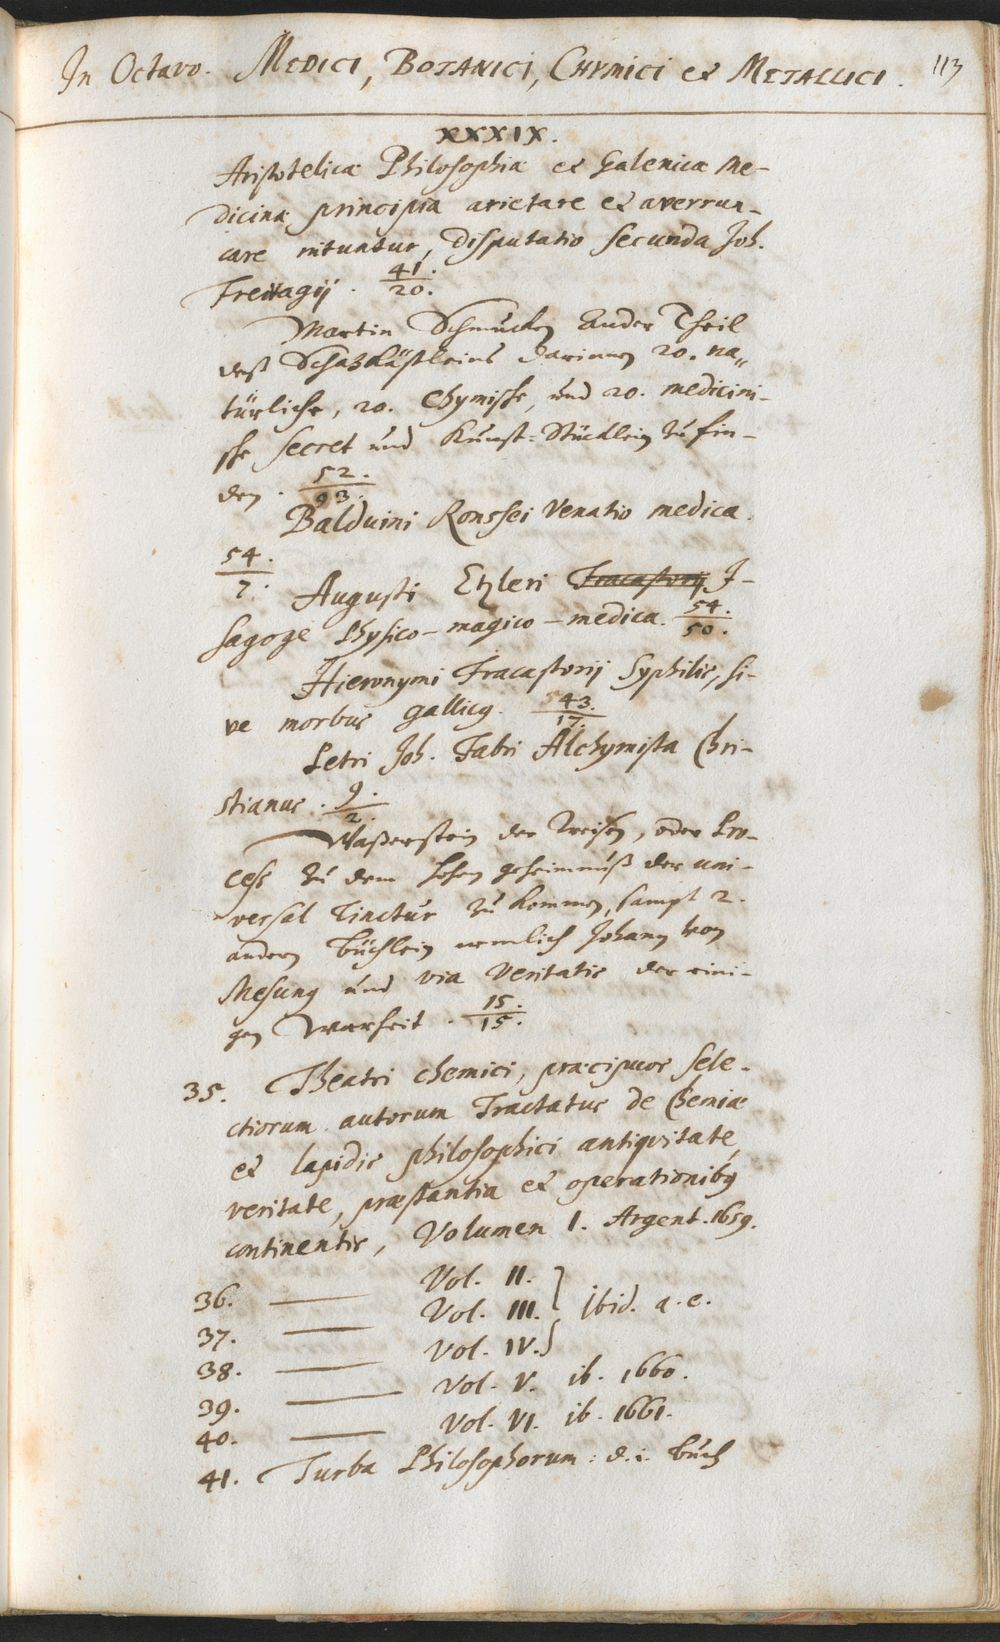 In Octavo. MEDICI, BOTANICI, CHYMICI et METALLICI. 113
XXXIX.
Aristotelicæ Philosophiæ et Galenicæ Me-
dicinæ principia arietare et averrun-
care nituntur, disputatio secunda Joh.
Freitagij. 41./20.
Martin Schmucken Ander Theil
deß Schazkästleins darinnen 20. na„
türliche, 20. Chymische, und 20. medicini-
sche Secret und Kunst-Stücklein zu fin-
den. 52./93.
Balduini Ronssei Venatio medica.
54./7.
Augusti Etzleri Fracastorij I-
sagoge Physico-magico-medica. 54./50.
Hieronymi Fracastorij Syphilis, si-
ve morbus gallicus. 43./17.
Petri Joh. Fabri Alchymista Chri-
stianus. 9./2.
Waßerstein der Weisen, oder Pro-
cess zu dem hohen geheimnuß der uni-
versal Tinctur zu kommen, sampt 2.
andern büchlein nemlich Johann von
Mesung und via Veritatis der eini-
gen Warheit. 15./15.
35. Theatri chemici, præcipuos sele-
ctiorum autorum Tractatus de Chemiæ
et lapidis philosophici antiqvitate,
veritate, præstantia et operationibus
continentis, Volumen I. Argent. 1659.
36. —— Vol. II.
37. —— Vol. III. } Ibid. a. e.
38. —— Vol. IV.
39. —— Vol. V. ib. 1660.
40. —— Vol. VI. ib. 1661.
41. Turba Philosophorum: d. i. buch